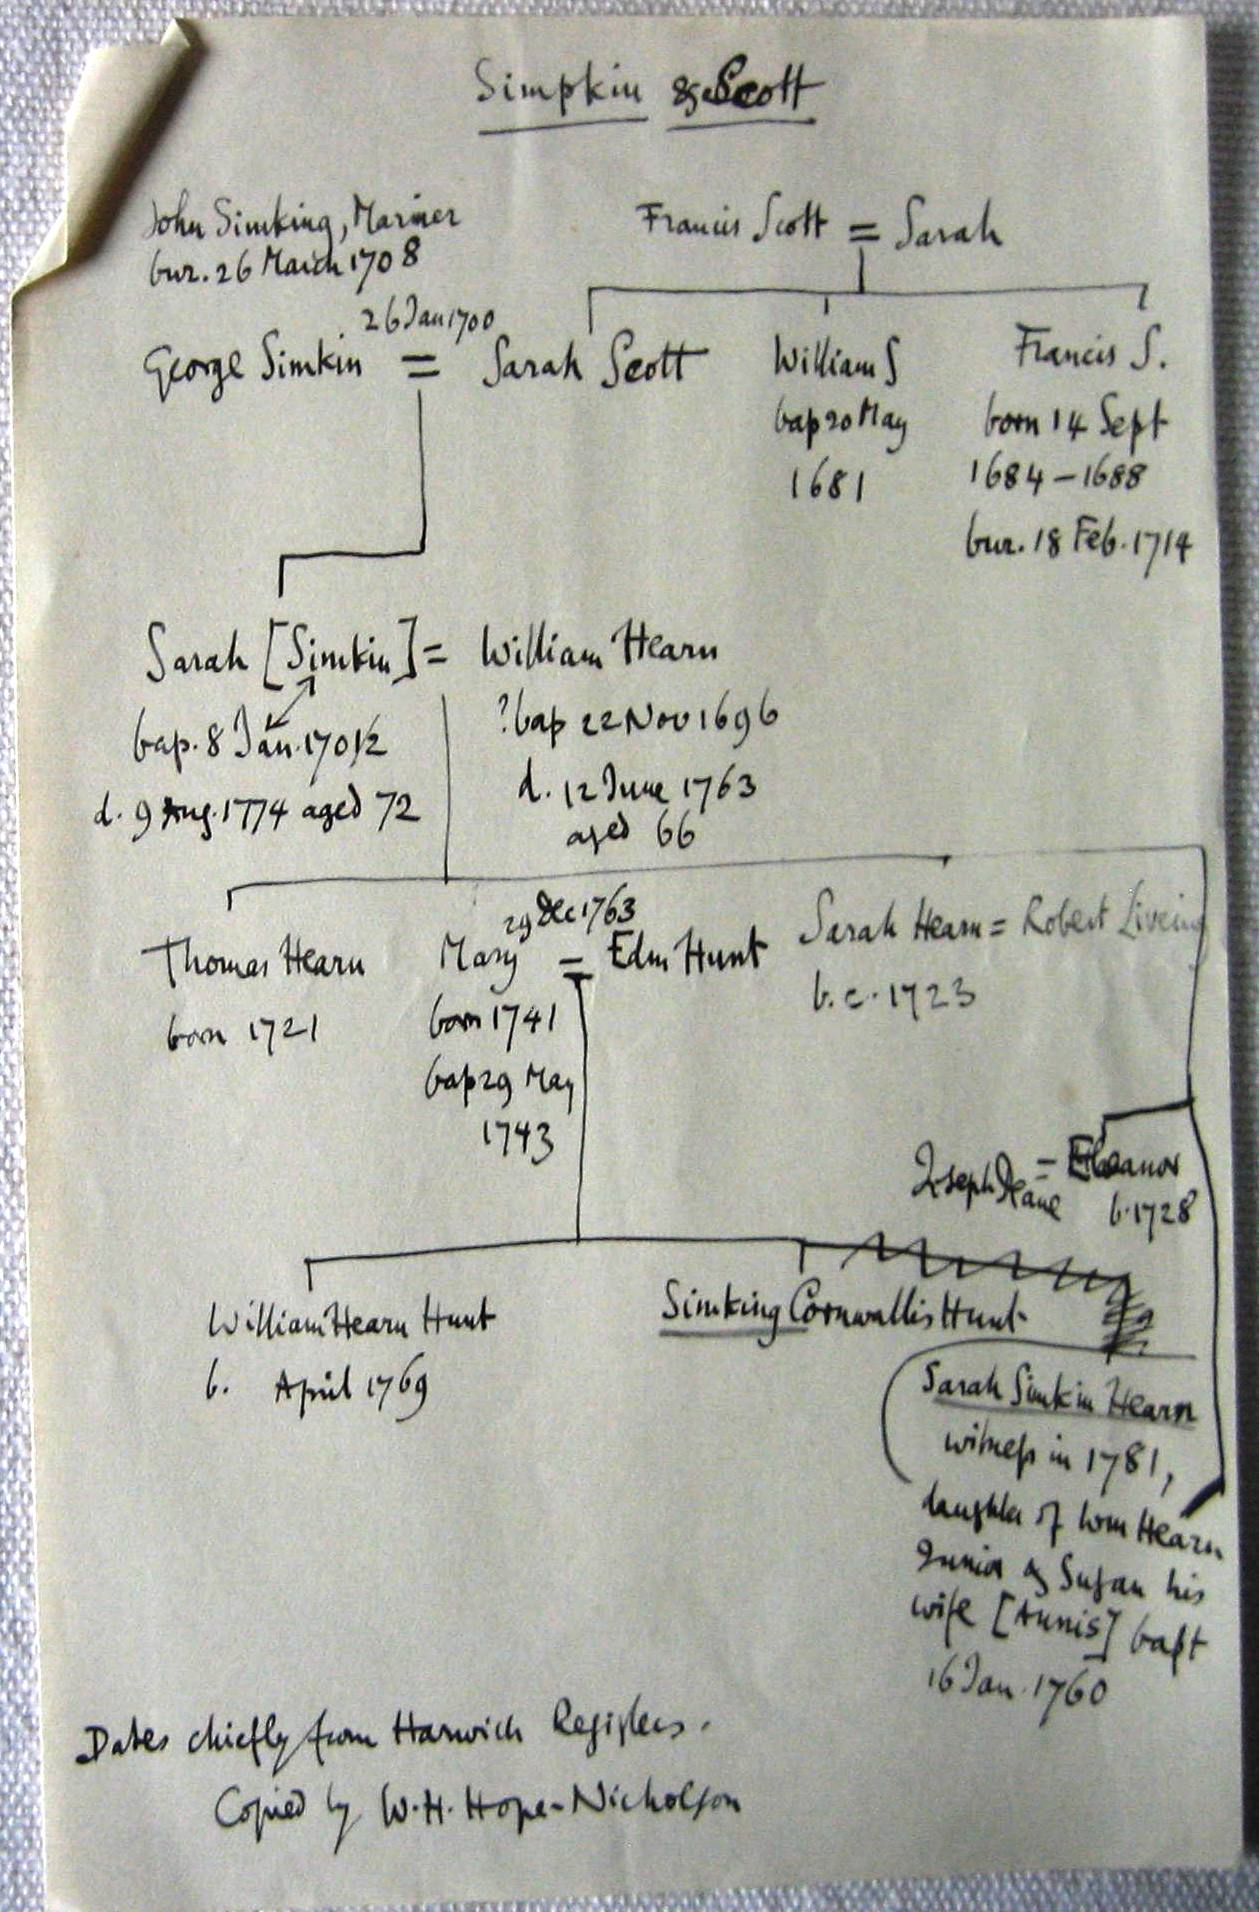 Simpkin & Scott
John Simking, Mariner
bur. 26 March 1708
Francis Scott = Sarah
26 Jan 1700
George Simkin = Sarah Scott
William S
bap 20 May
1681
Francis S.
born 14 Sept
1684 – 1688
bur. 18 Feb. 1714
Sarah [Simkin] = William Hearn
bap. 8 Jan. 1701/2
d. 9 Aug. 1774 aged 72
?bap 22 Nov 1696
d. 12 June 1763
aged 66
Thomas Hearn
born 1721
29 Dec 1763
Mary = Edm Hunt
born 1741
bap 29 May
1743
Sarah Hearn = Robert Liveing
b. c. 1723
Joseph Deane = Eleanor
b. 1728
William Hearn Hunt
b. April 1769
Simking Cornwallis Hunt
Sarah Simkin Hearn
witness in 1781,
daughter of Wm Hearn
Junior & Susan his
wife [Annis] bapt
16 Jan. 1760
Dates chiefly from Harwich Registers.
Copied by W. H. Hope-Nicholson